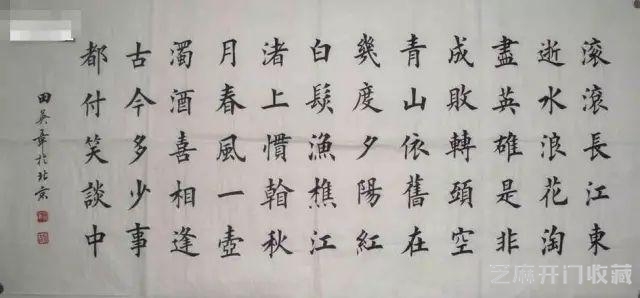 滚滚長江東
逝水浪花淘
盡英雄是非
成敗轉頭空
青山依舊在
幾度夕陽紅
白髮漁樵江
渚上慣翰秋
月春風一壺
濁酒喜相逢
古今多少事
都付笑談中
田英章於北京
芝麻开门收藏